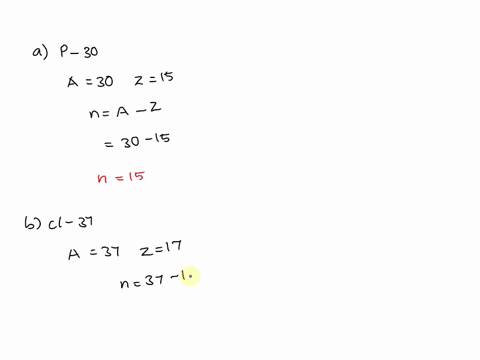 a) P-30
A = 30 Z = 15
n = A - Z
= 30 - 15
n = 15
b) Cl-37
A = 37 Z = 17
n = 37 - 1